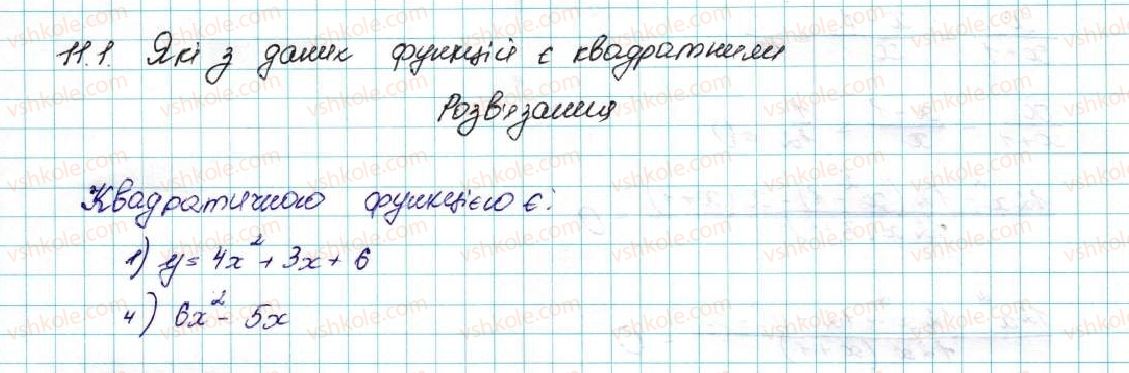 11.1. Які з даних функцій є квадратними
Розв'язання
Квадратичною функцією є:
1) y = 4x² + 3x + 6
4) 6x² - 5x